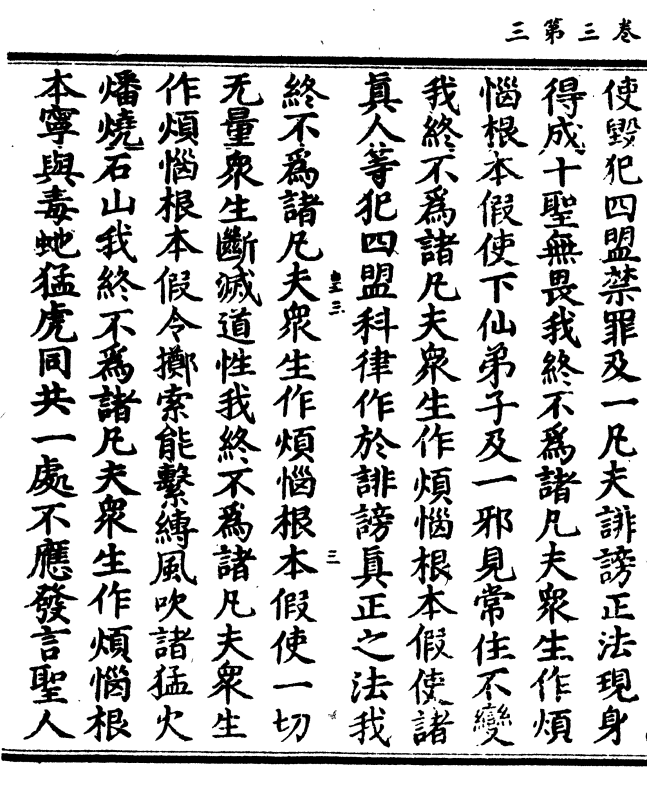 三第三卷
使毀犯四盟禁罪及一凡夫誹謗正法現身
得成十聖無畏我終不為諸凡夫衆生作煩
惱根本假使下仙弟子及一邪見常住不變
我終不為諸凡夫衆生作煩惱根本假使諸
真人等犯四盟科律作於誹謗真正之法我
三
終不為諸凡夫衆生作煩惱根本假使一切
无量衆生斷滅道性我終不為諸凡夫衆生
作煩惱根本假令擲索能繫縛風吹諸猛火
燔燒石山我終不為諸凡夫衆生作煩惱根
本寧與毒虵猛虎同共一處不應發言聖人